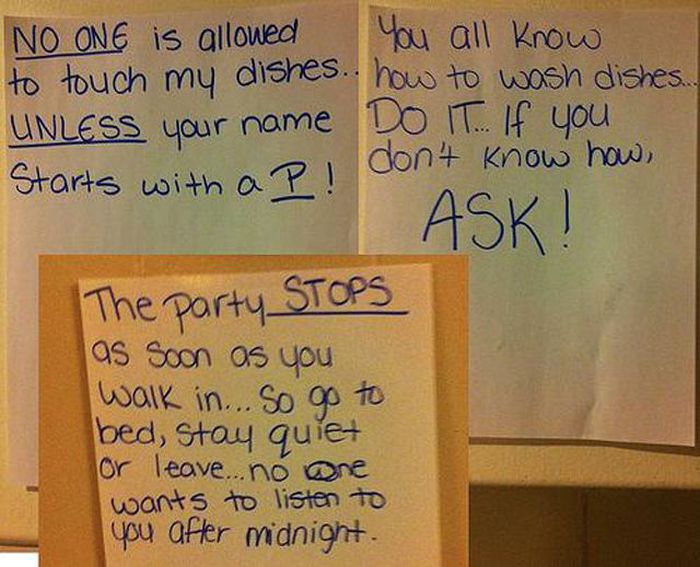 NO ONE is allowed
to touch my dishes..
UNLESS your name
Starts with a P!
You all know
how to wash dishes...
DO IT... If you
don't know how,
ASK!
The party STOPS
as soon as you
walk in... So go to
bed, stay quiet
or leave...no one
wants to listen to
you after midnight.